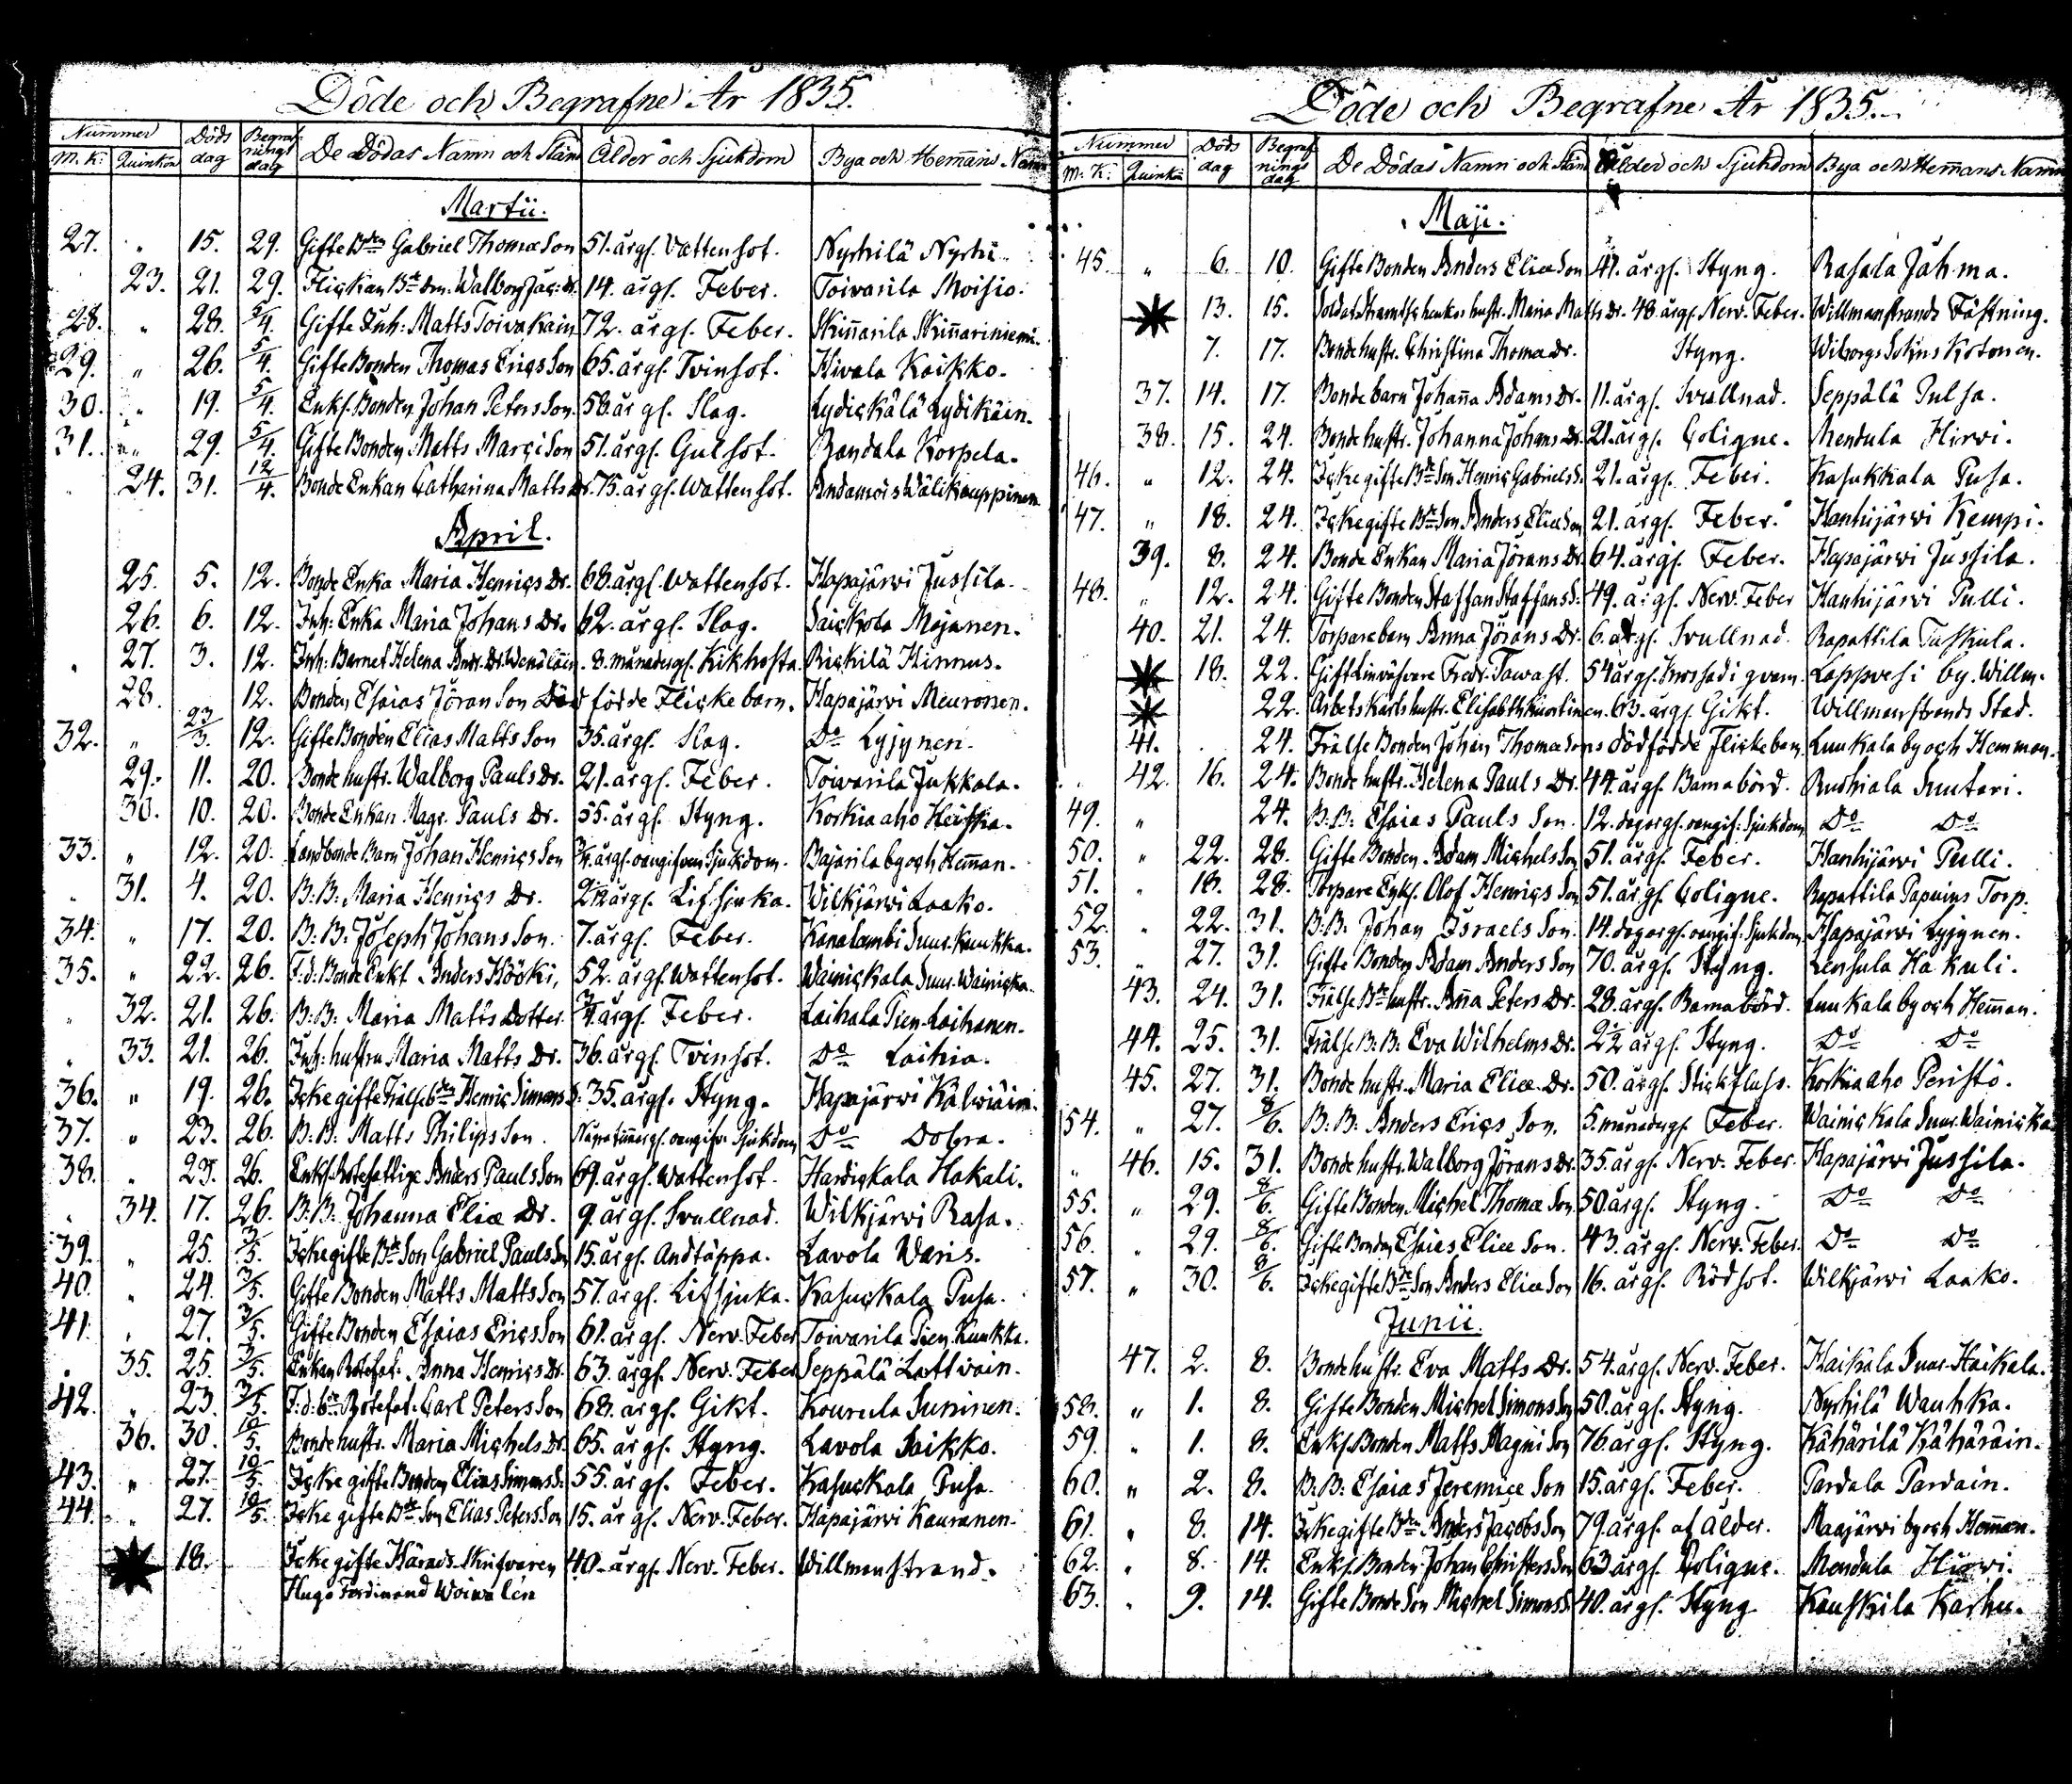 Döde och Begrafne År 1835.
Nummer Döds dag Begraf nings dag De Dödas Namn och Stånd Ålder och Sjukdom Bya och Hemans Namn
M. K. Quinkön
Martii.
27. " 15. 29. Gifte Bden Gabriel Thomæ Son 51. årgl. Vattensot. Nyrhilä Nyrhi.
23. 21. 29. Flickan Bde Walborg Jac: dr. 14. årgl. Feber. Toivarila Moisio.
28. " 28. 5/4. Gifte Inh: Matts Toivakain 72. årgl. Feber. Skinnarila Skinnariniemi.
29. " 26. 5/4. Gifte Bonden Thomas Erics Son 65. årgl. Tvinsot. Hivala Kaikko.
30. " 19. 5/4. Enkl. Bonden Johan Peters Son. 58. årgl. Slag. Lydickälä Lydikäin.
31. " 29. 5/4. Gifte Bonden Matts Marci Son 51. årgl. Gulsot. Randala Korpela.
24. 31. 12/4. Bonde Enkan Catharina Matts Dr. 75. årgl. Wattensot. Andamois Wälikauppinen
April.
25. 5. 12. Bonde Enka Maria Henrics Dr. 68. årgl. Wattensot. Hapajärwi Jussila.
26. 6. 12. Inh: Enka Maria Johans Dr. 62. årgl. Slag. Saickola Mojanen.
27. 3. 12. Inh: Barnet Helena Andr. Dr. Wenäläin. 8. månadergl. Kikhosta. Rickilä Hinnus.
28. 12. Bonden Esaias Jöran Son Död födde Flickebarn. Hapajärwi Meuronen.
32. " 23/3. 12. Gifte Bonden Elias Matts Son 35. årgl. Slag. Do Lyjynen.
29. 11. 20. Bonde hustr. Walborg Pauls Dr. 21. årgl. Feber. Toivarila Jukkala.
30. 10. 20. Bonde Enkan Magr. Pauls Dr. 55. årgl. Styng. Korkiaaho Heiska.
33. " 12. 20. Landbonde Barn Johan Henrics Son 3/4. årgl. oangifven Sjukdom. Bajarila by och Heman.
31. 4. 20. B: B: Maria Henrics Dr. 2 1/2 årgl. Lifsjuka. Wilkjärwi Laako.
34. " 17. 20. B: B: Joseph Johans Son. 7. årgl. Feber. Kanalambi Suur. Kuukka.
35. " 22. 26. F: d: Bonde Enkl. Anders Hööki, 52. årgl. Wattensot. Wainickala Suur. Wainicka.
32. 21. 26. B: B: Maria Matts Dotter. 3/4. årgl. Feber. Laihala Pien. Laihanen.
33. 21. 26. Inh: hustru Maria Matts Dr. 36. årgl. Tvinsot. Do Laihia.
36. " 19. 26. Icke gifte Frälseb. Henric Simons S. 35. årgl. Styng. Hapajärwi Kälwiäin.
37. " 23. 26. B: B: Matts Philips Son. Några timmargl. oangifv. Sjukdom Do Dobra.
38. 23. 26. Enkl. Rotefattige Anders Pauls Son 69. årgl. Wattensot. Hardickala Hakali.
34. 17. 26. B: B: Johanna Eliæ Dr. 9. årgl. Svullnad. Wilkjärwi Rasa.
39. " 25. 3/5. Icke gifte Bde Son Gabriel Pauls Son 15. årgl. Andtäppa. Lavola Waris.
40. " 24. 3/5. Gifte Bonden Matts Matts Son 57. årgl. Lifsjuka. Kasuckala Pusa.
41. " 27. 3/5. Gifte Bonden Esaias Erics Son 61. årgl. Nerv. Feber Toivarila Pien. Kuukka.
35. 25. 3/5. Enkan Rotefat. Anna Henrics Dr. 63. årgl. Nerv. Feber Seppälä Lattwain.
42. " 23. 3/5. F: d: Rotefat. Carl Peters Son 68. årgl. Gikt. Kourula Suninen.
36. 30. 10/5. Bonde hustr. Maria Michels Dr. 65. årgl. Styng. Lavola Saikko.
43. " 27. 10/5. Icke gifte Bonden Elias Simons S: 55. årgl. Feber. Kasuckala Pusa.
44. " 27. 10/5. Icke gifte Bde Son Elias Peters Son 15. årgl. Nerv. Feber. Hapajärwi Kauranen.
18. Icke gifte Härads Skrifvaren 40. årgl. Nerv. Feber. Willmanstrand.
Hugo Ferdinand Woiwalen
Döde och Begrafne År 1835.
Nummer Döds dag Begraf nings dag De Dödas Namn och Stånd Ålder och Sjukdom Bya och Hemans Namn
M. K. Quinkön
Maji.
45. " 6. 10. Gifte Bonden Anders Eliæ Son 41. årgl. Styng. Rasala Jähma.
13. 15. Soldat hustr. Maria Matts Dr. 48. årgl. Nerv. Feber. Willmanstrands Fästning.
7. 17. Bonde hustr. Christina Thomæ Dr. Styng. Wiborgs Sokns Kotonen.
37. 14. 17. Bonde barn Johanna Adams Dr. 11. årgl. Svullnad. Seppälä Pulsa.
38. 15. 24. Bonde hustr. Johanna Johans Dr. 21. årgl. Coligne. Mendula Hirwi.
46. " 12. 24. Icke gifte Bde Son Henric Gabriels S. 21. årgl. Feber. Kasukkala Pusa.
47. " 18. 24. Icke gifte Bde Son Anders Eliæ Son 21. årgl. Feber. Hanhijärwi Kempi.
39. 8. 24. Bonde Enkan Maria Jörans Dr. 64. årgl. Feber. Hapajärwi Jussila.
48. " 12. 24. Gifte Bonden Staffan Staffans S: 49. årgl. Nerv. Feber Hanhijärwi Pulli.
40. 21. 24. Torpare barn Anna Jörans Dr. 6. årgl. Svullnad. Rapattila Tuskiula.
18. 22. Gift Linväfvare Fredr. Tawast. 54 årgl. Lappvesi by. Willm.
22. Arbetskarls hustr. Elisabeth Kuortinen. 63. årgl. Gikt. Willmanstrands Stad.
41. 24. Frälse Bonden Johan Thomæ Sons dödfödde Flickebarn. Luukala by och Hemman.
42. 16. 24. Bonde hustr. Helena Pauls Dr. 44. årgl. Barnabörd. Ruohiala Suutari.
49. " 24. B: B: Esaias Pauls Son. 12. dagargl. oangif. Sjukdom Do Do
50. " 22. 28. Gifte Bonden Adam Michels Son 51. årgl. Feber. Hanhijärwi Pulli.
51. " 18. 28. Torpare Enkl. Olof Henrics Son 51. årgl. Coligne. Rapattila Papuins Torp.
52. " 22. 31. B: B: Johan Israels Son. 14. dagargl. oangif. Sjukdom. Hapajärwi Lyjynen.
53. " 27. 31. Gifte Bonden Adam Anders Son 70. årgl. Styng. Lensula Hakuli.
43. 24. 31. Frälse Bde hustr. Anna Peters Dr. 28. årgl. Barnabörd. Luukala by och Heman.
44. 25. 31. Frälse B: B: Eva Wilhelms Dr. 2 1/2 årgl. Styng. Do Do
45. 27. 31. Bonde hustr. Maria Eliæ Dr. 50. årgl. Stickfluss. Korkiaaho Peristö.
54. " 27. 8/6. B: B: Anders Erics Son. 5. månadergl. Feber. Wainickala Suur. Wainicka
46. 15. 31. Bonde hustr. Walborg Jörans Dr. 35. årgl. Nerv. Feber. Hapajärwi Jussila.
55. " 29. 8/6. Gifte Bonden Michel Thomæ Son 50. årgl. Styng. Do Do
56. " 29. 8/6. Gifte Bonden Esaias Eliæ Son. 43. årgl. Nerv. Feber. Do Do
57. " 30. 8/6. Icke gifte Bde Son Anders Eliæ Son 16. årgl. Rödsot. Wilkjärwi Laako.
Junii.
47. 2. 8. Bonde hustr. Eva Matts Dr. 54. årgl. Nerv. Feber. Haikala Suur-Haikala.
58. " 1. 8. Gifte Bonden Michel Simons Son 50. årgl. Styng. Nyrhilä Wauhka.
59. " 1. 8. Enkl. Bonden Matts Magni Son 76. årgl. Styng. Kähärilä Kähäräin.
60. " 2. 8. B: B: Esaias Jeremiæ Son 15. årgl. Feber. Pardala Pardain.
61. " 8. 14. Icke gifte Bden Anders Jacobs Son 79. årgl. af Ålder. Maajärwi by och Heman.
62. " 8. 14. Enkl. Bonden Johan Christers Son 63 årgl. Coligne. Mendula Hirwi.
63. " 9. 14. Gifte Bonde Son Michel Simons S. 40. årgl. Styng Kauskila Karhu.